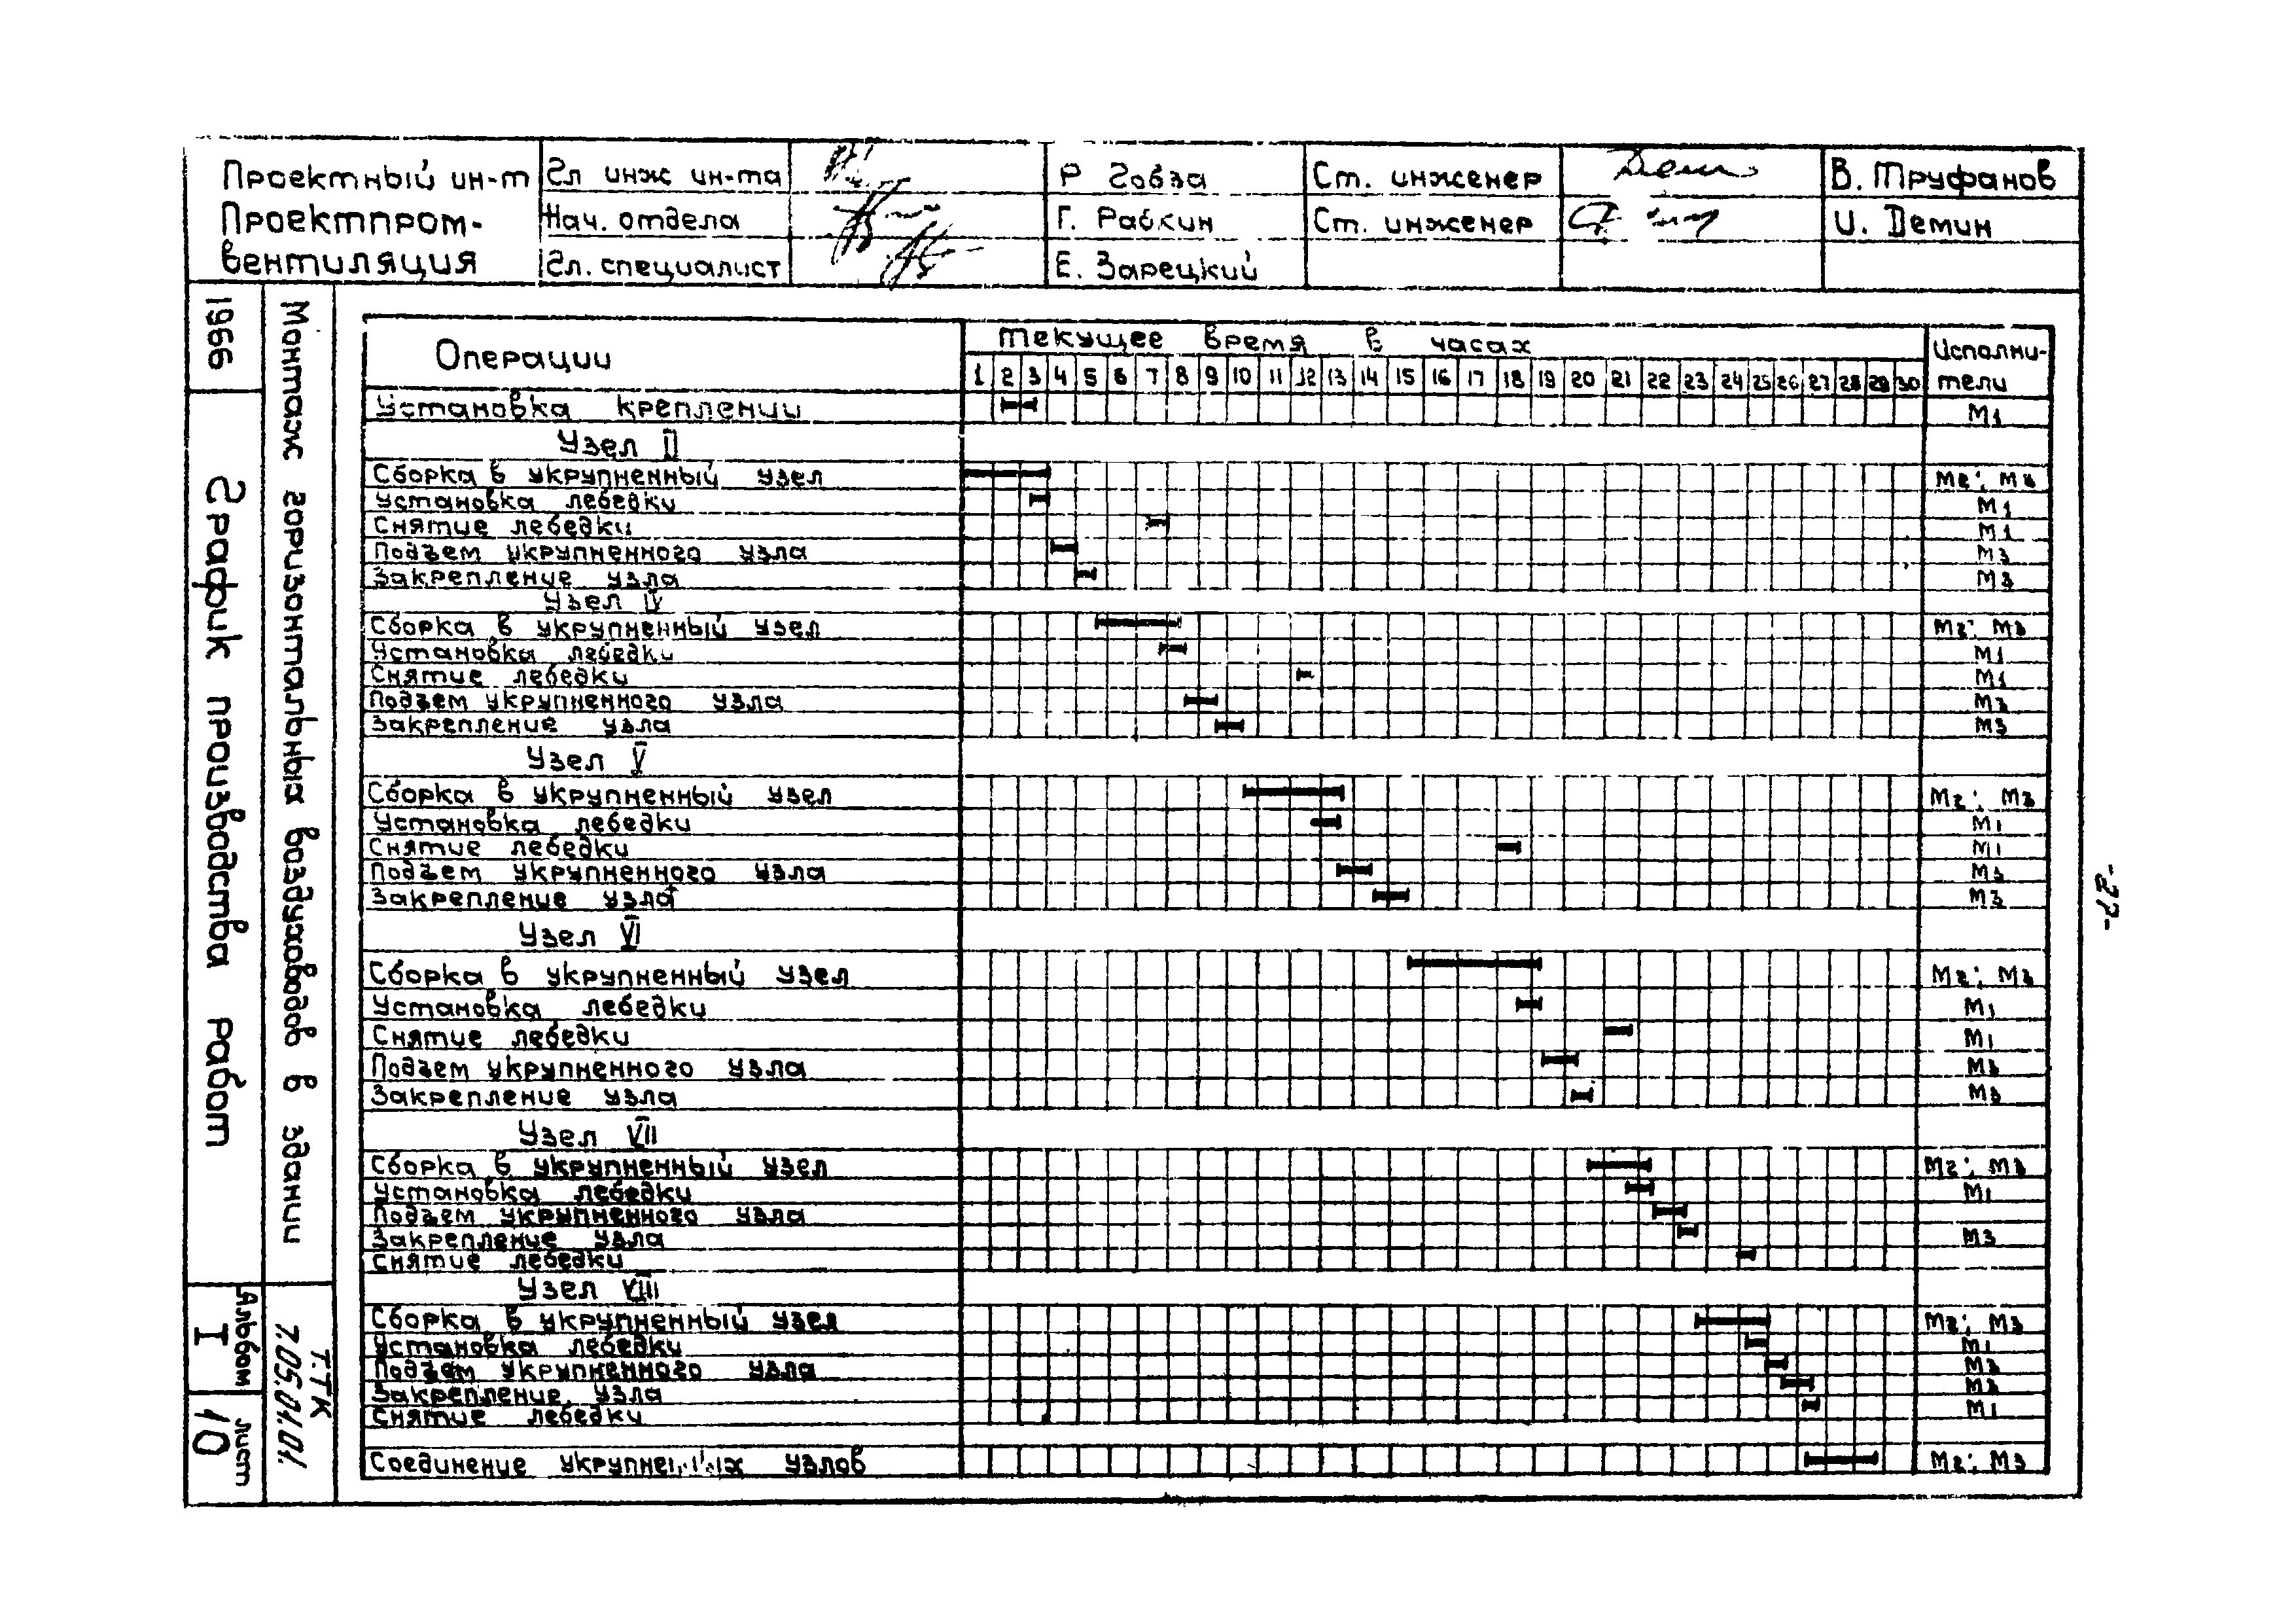 Проектный ин-т
Проектпром-
вентиляция
Гл инж ин-та
Нач. отдела
Гл. специалист
Р Гобза
Г. Рабкин
Е. Зарецкий
Ст. инженер
Ст. инженер
В. Труфанов
И. Демин
1966
График производства работ
Альбом
I
лист
10
Монтаж горизонтальных воздуховодов в здании
Т.Т К
7.05.01.01.
Операции
Текущее время в часах
Исполни-
тели
1 2 3 4 5 6 7 8 9 10 11 12 13 14 15 16 17 18 19 20 21 22 23 24 25 26 27 28 29 30
Установка креплений М1
Узел II
Сборка в укрупненный узел М2; М3
Установка лебедки М1
Снятие лебедки М1
Подъем укрупненного узла М3
Закрепление узла М3
Узел IV
Сборка в укрупненный узел М2; М3
Установка лебедки М1
Снятие лебедки М1
Подъем укрупненного узла М3
Закрепление узла М3
Узел V
Сборка в укрупненный узел М2; М3
Установка лебедки М1
Снятие лебедки М1
Подъем укрупненного узла М3
Закрепление узла М3
Узел VI
Сборка в укрупненный узел М2; М3
Установка лебедки М1
Снятие лебедки М1
Подъем укрупненного узла М3
Закрепление узла М3
Узел VII
Сборка в укрупненный узел М2; М3
Установка лебедки М1
Подъем укрупненного узла
Закрепление узла М3
Снятие лебедки
Узел VIII
Сборка в укрупненный узел М2; М3
Установка лебедки М1
Подъем укрупненного узла М3
Закрепление узла М3
Снятие лебедки М1
Соединение укрупненных узлов М2; М3
-27-